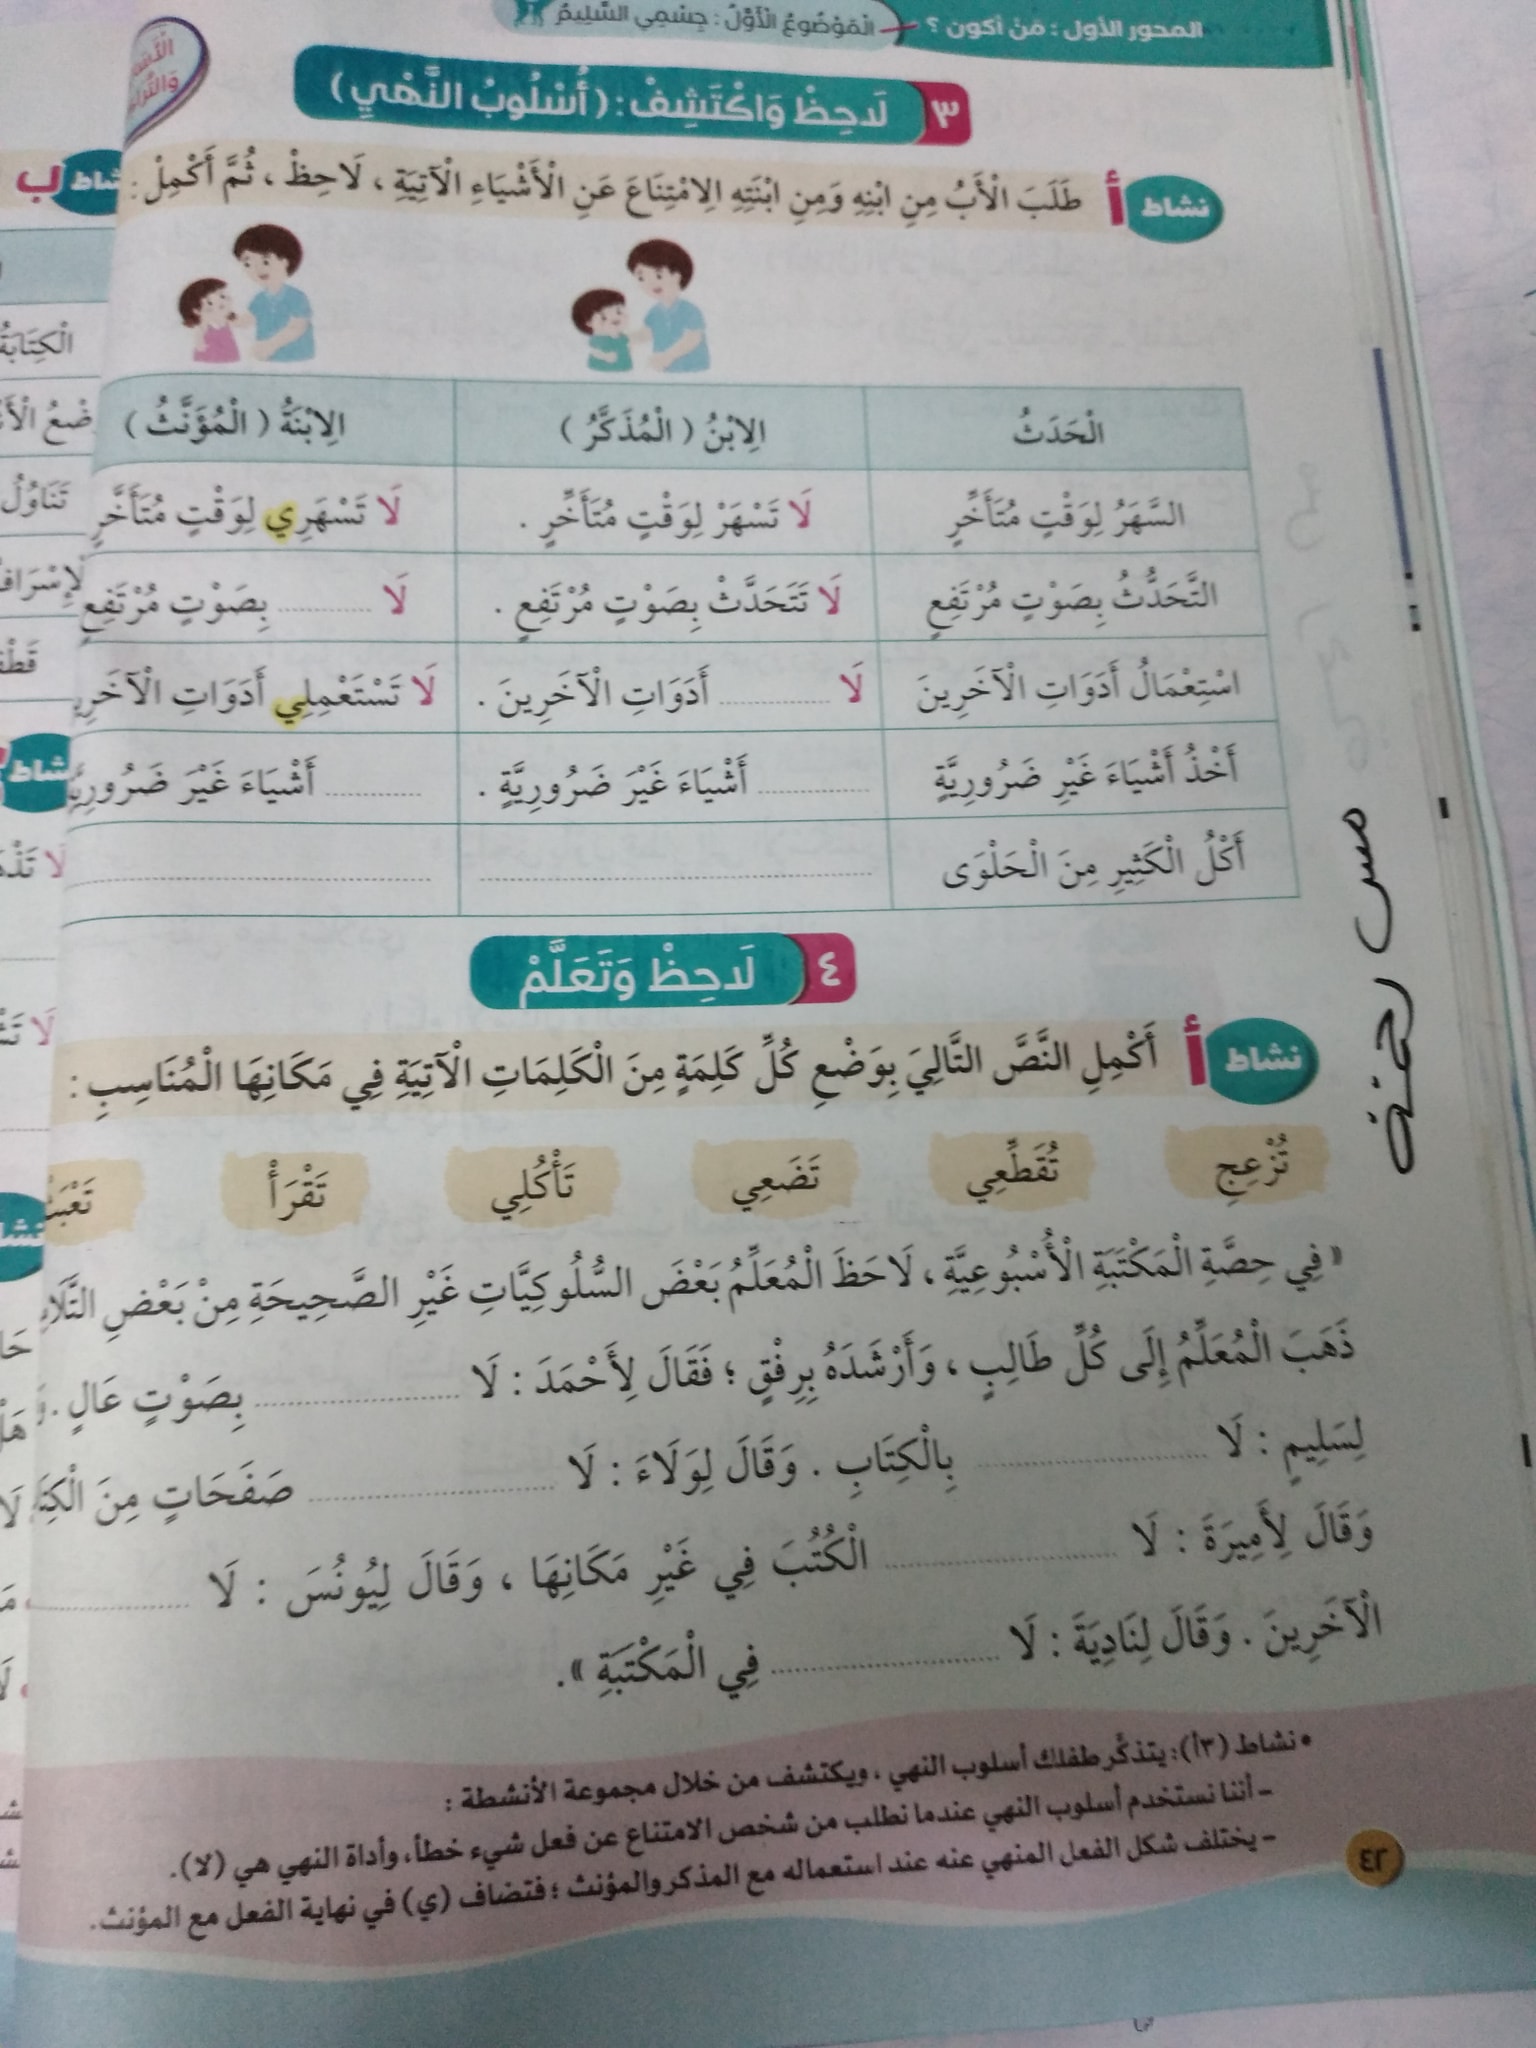 المحور الأول : مَنْ أكون ؟ الْمَوْضُوعُ الْأَوَّلُ : جِسْمِي السَّلِيمُ
٣ لَاحِظْ وَاكْتَشِفْ : ( أُسْلُوبُ النَّهْيِ )
نشاط أ طَلَبَ الْأَبُ مِنِ ابْنِهِ وَمِنِ ابْنَتِهِ الِامْتِنَاعَ عَنِ الْأَشْيَاءِ الْآتِيَةِ ، لَاحِظْ ، ثُمَّ أَكْمِلْ :
الْحَدَثُ الِابْنُ ( الْمُذَكَّرُ ) الِابْنَةُ ( الْمُؤَنَّثُ )
السَّهَرُ لِوَقْتٍ مُتَأَخِّرٍ لَا تَسْهَرْ لِوَقْتٍ مُتَأَخِّرٍ . لَا تَسْهَرِي لِوَقْتٍ مُتَأَخَّرٍ
التَّحَدُّثُ بِصَوْتٍ مُرْتَفِعٍ لَا تَتَحَدَّثْ بِصَوْتٍ مُرْتَفِعٍ . لَا ............ بِصَوْتٍ مُرْتَفِعٍ
اسْتِعْمَالُ أَدَوَاتِ الْآخَرِينَ لَا ............ أَدَوَاتِ الْآخَرِينَ . لَا تَسْتَعْمِلِي أَدَوَاتِ
أَخْذُ أَشْيَاءَ غَيْرِ ضَرُورِيَّةٍ ............ أَشْيَاءَ غَيْرَ ضَرُورِيَّةٍ . ............ أَشْيَاءَ غَيْرَ
أَكْلُ الْكَثِيرِ مِنَ الْحَلْوَى
٤ لَاحِظْ وَتَعَلَّمْ
نشاط أ أَكْمِلِ النَّصَّ التَّالِيَ بِوَضْعِ كُلِّ كَلِمَةٍ مِنَ الْكَلِمَاتِ الْآتِيَةِ فِي مَكَانِهَا الْمُنَاسِبِ :
تُزْعِجِ تُقَطِّعِي تَضَعِي تَأْكُلِي تَقْرَأْ
« فِي حِصَّةِ الْمَكْتَبَةِ الْأُسْبُوعِيَّةِ ، لَاحَظَ الْمُعَلِّمُ بَعْضَ السُّلُوكِيَّاتِ غَيْرِ الصَّحِيحَةِ مِنْ بَعْضِ
ذَهَبَ الْمُعَلِّمُ إِلَى كُلِّ طَالِبٍ ، وَأَرْشَدَهُ بِرِفْقٍ ؛ فَقَالَ لِأَحْمَدَ : لَا ............ بِصَوْتٍ عَالٍ .
لِسَلِيمٍ : لَا ............ بِالْكِتَابِ . وَقَالَ لِوَلَاءَ : لَا ............ صَفَحَاتٍ مِنَ
وَقَالَ لِأَمِيرَةَ : لَا ............ الْكُتُبَ فِي غَيْرِ مَكَانِهَا ، وَقَالَ لِيُونُسَ : لَا ............
الْآخَرِينَ . وَقَالَ لِنَادِيَةَ : لَا ............ فِي الْمَكْتَبَةِ » .
• نشاط (٣أ): يتذكَّر طفلك أسلوب النهي ، ويكتشف من خلال مجموعة الأنشطة :
- أننا نستخدم أسلوب النهي عندما نطلب من شخص الامتناع عن فعل شيء خطأ، وأداة النهي هي (لا).
- يختلف شكل الفعل المنهي عنه عند استعماله مع المذكر والمؤنث ؛ فتضاف (ي) في نهاية الفعل مع المؤنث.
٤٢